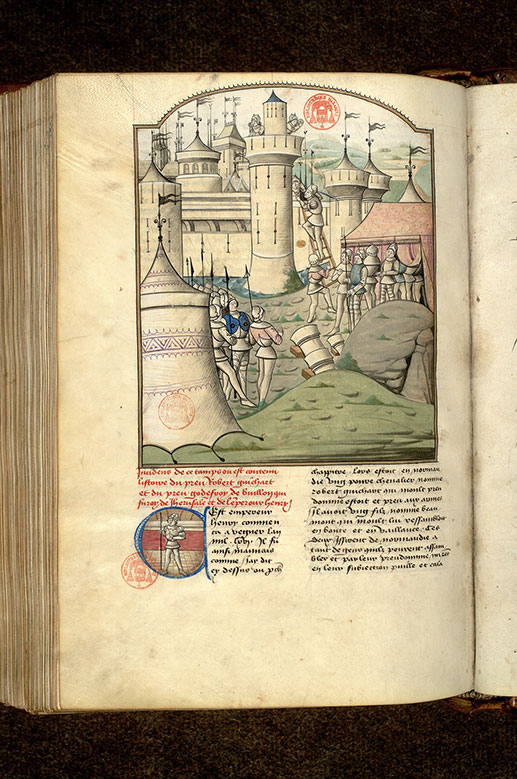 Incidens de ce tamps ou est contenu
listoire du preu Robert guischart
et du preu godefroy de buillon qui
fu roy de Jherusale et de lepereur henry
Cest empereur
henry commen
ca a regner lan
mil. lvij. Il fu
ainsi mauuais
comme jay dit
cy dessus ou pch
chappitre Lors estoit en norman
die vng poure cheualier nomme
robert guischart qui moult preu
domme estoit et preu aux armes
Il auoit vng filz nomme beau
mont qui moult lui ressambloit
en bonte et en vaillance. Ces
deux issirent de normandie a
tant de gens quilz peurent assam
bler et par leur preudommie mirent
en leur subiection puille et cala